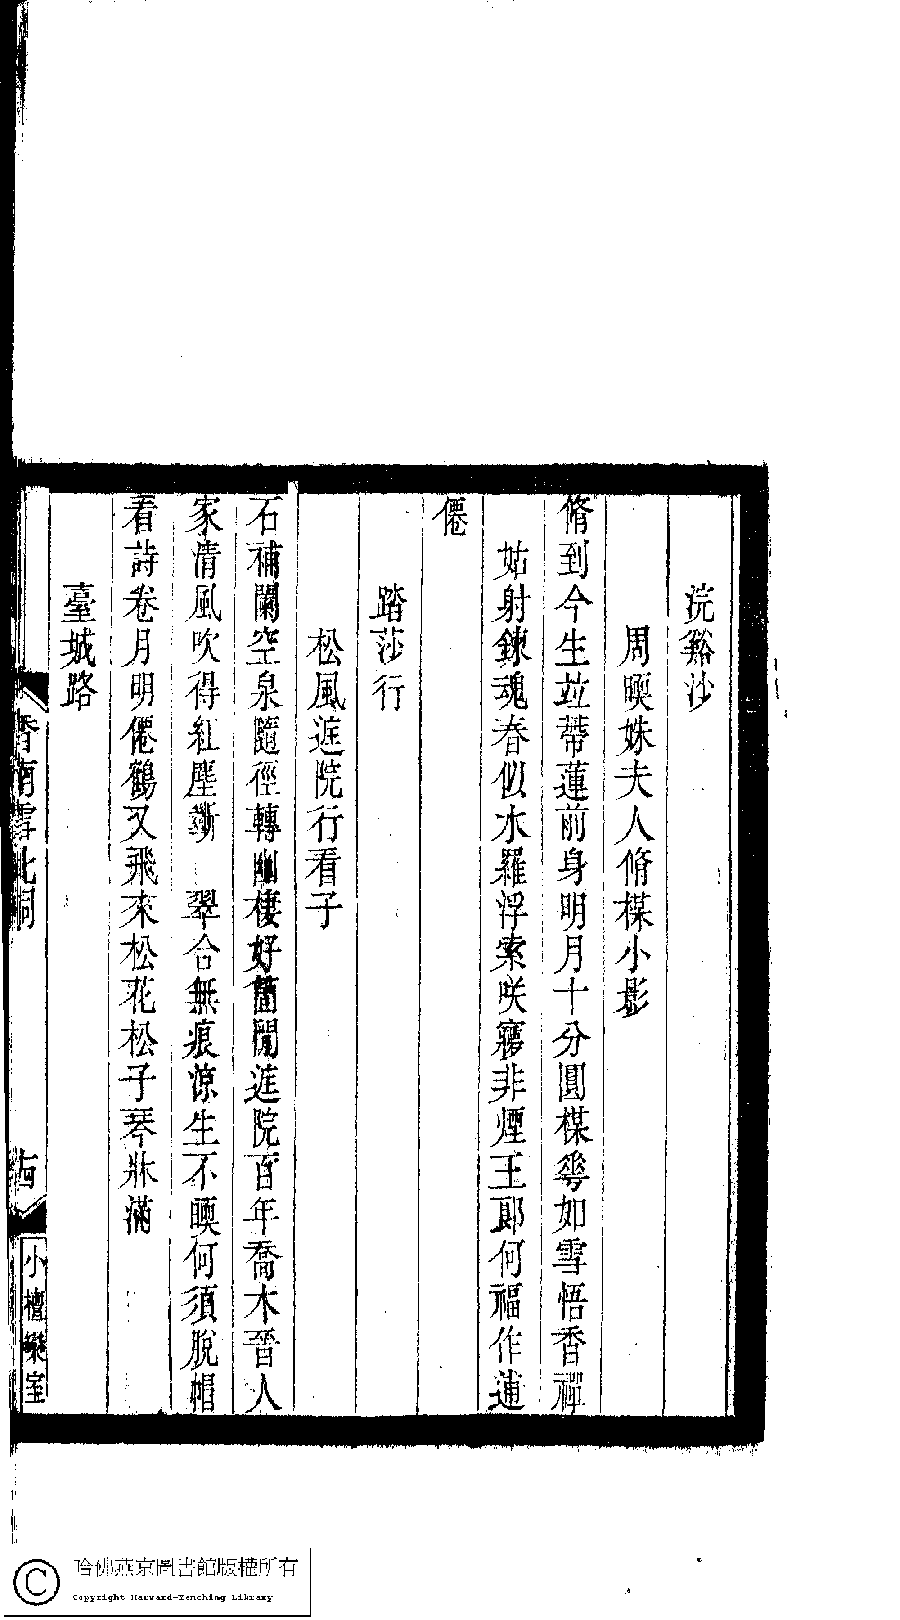 浣谿沙
周㬉姝夫人脩楳小影
脩到今生竝蔕蓮前身明月十分圓楳㝈如雪悟香禪
姑射鍊魂春似水羅浮索咲寱非煙王郞何福作蓮
僊
踏莎行
松風庭院行看子
石補闌空泉隨徑轉幽棲好箇閒庭院百年喬木晉人
家淸風吹得紅塵斷　翠合無痕涼生不㬉何須脫帽
看詩卷月明僊鶴又飛來松花松子琴牀滿
臺城路
香南雪北詞
古
小檀欒室
哈佛燕京圖書館版權所有
Copyright Harvard-Yenching Library